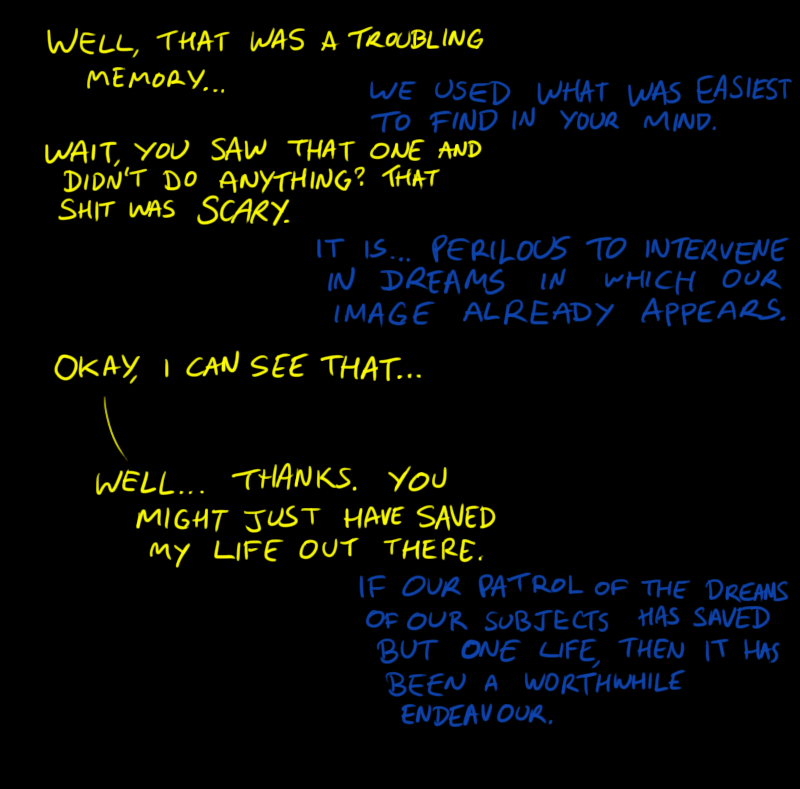 WELL, THAT WAS A TROUBLING
MEMORY...
WE USED WHAT WAS EASIEST
TO FIND IN YOUR MIND.
WAIT, YOU SAW THAT ONE AND
DIDN'T DO ANYTHING? THAT
SHIT WAS SCARY.
IT IS... PERILOUS TO INTERVENE
IN DREAMS IN WHICH OUR
IMAGE ALREADY APPEARS.
OKAY, I CAN SEE THAT...
WELL... THANKS. YOU
MIGHT JUST HAVE SAVED
MY LIFE OUT THERE.
IF OUR PATROL OF THE DREAMS
OF OUR SUBJECTS HAS SAVED
BUT ONE LIFE, THEN IT HAS
BEEN A WORTHWHILE
ENDEAVOUR.